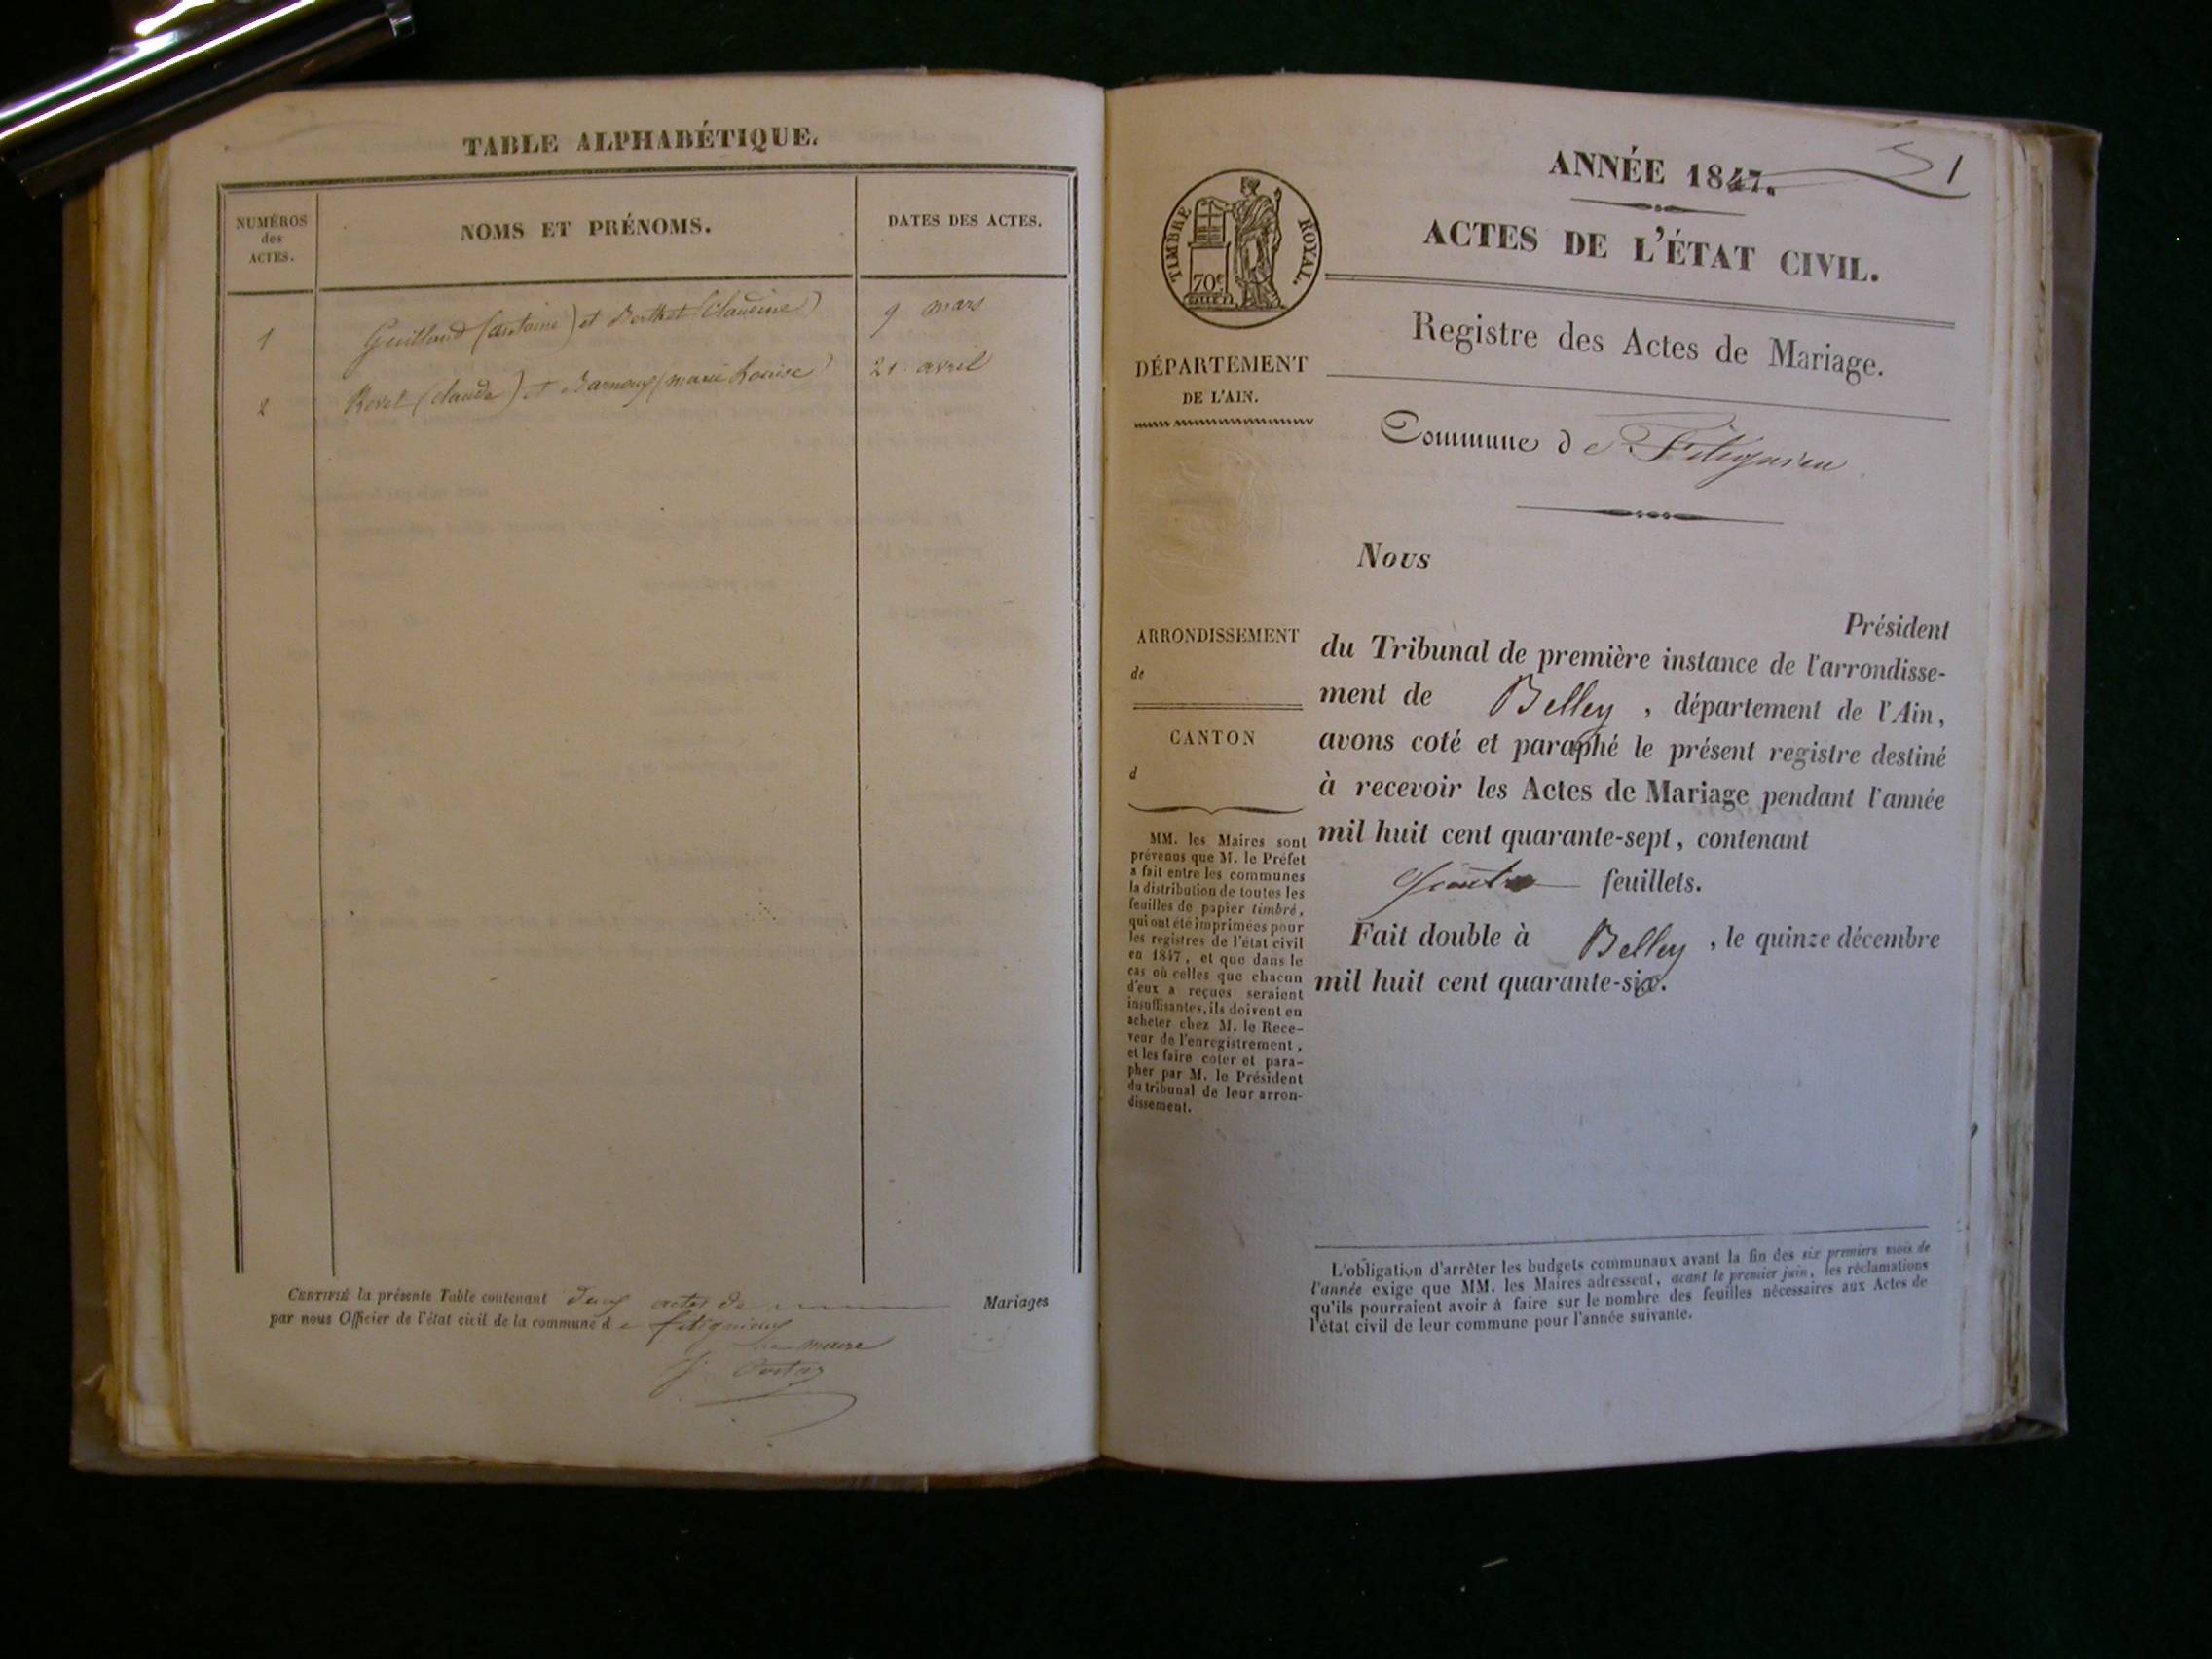 TABLE ALPHABÉTIQUE.
NUMÉROS
des
ACTES.
NOMS ET PRÉNOMS.
DATES DES ACTES.
1 Guilland (antoine) et Berthet (Claudine) 9 mars
2 Revel (claude) et (marie Louise) 21 avril
CERTIFIÉ la présente Table contenant deux actes de Mariages
par nous Officier de l'état civil de la commune de fitignieux
le maire
ANNÉE 1847.
1
ACTES DE L'ÉTAT CIVIL.
TIMBRE ROYAL.
70c
Registre des Actes de Mariage.
DÉPARTEMENT
DE L'AIN.
Commune de Fitignieu
Nous
Président
ARRONDISSEMENT
de
CANTON
d
du Tribunal de première instance de l'arrondisse-
ment de Belley, département de l'Ain,
avons coté et paraphé le présent registre destiné
à recevoir les Actes de Mariage pendant l'année
mil huit cent quarante-sept, contenant
feuillets.
Fait double à Belley, le quinze décembre
mil huit cent quarante-six.
MM. les Maires sont
prévenus que M. le Préfet
a fait entre les communes
la distribution de toutes les
feuilles de papier timbré,
qui ont été imprimées pour
les registres de l'état civil
en 1847, et que dans le
cas où celles que chacun
d'eux a reçues seraient
insuffisantes, ils doivent en
acheter chez M. le Rece-
veur de l'enregistrement,
et les faire coter et para-
pher par M. le Président
du tribunal de leur arron-
dissement.
L'obligation d'arrêter les budgets communaux avant la fin des six premiers mois de
l'année exige que MM. les Maires adressent, avant le premier juin, les réclamations
qu'ils pourraient avoir à faire sur le nombre des feuilles nécessaires aux Actes de
l'état civil de leur commune pour l'année suivante.